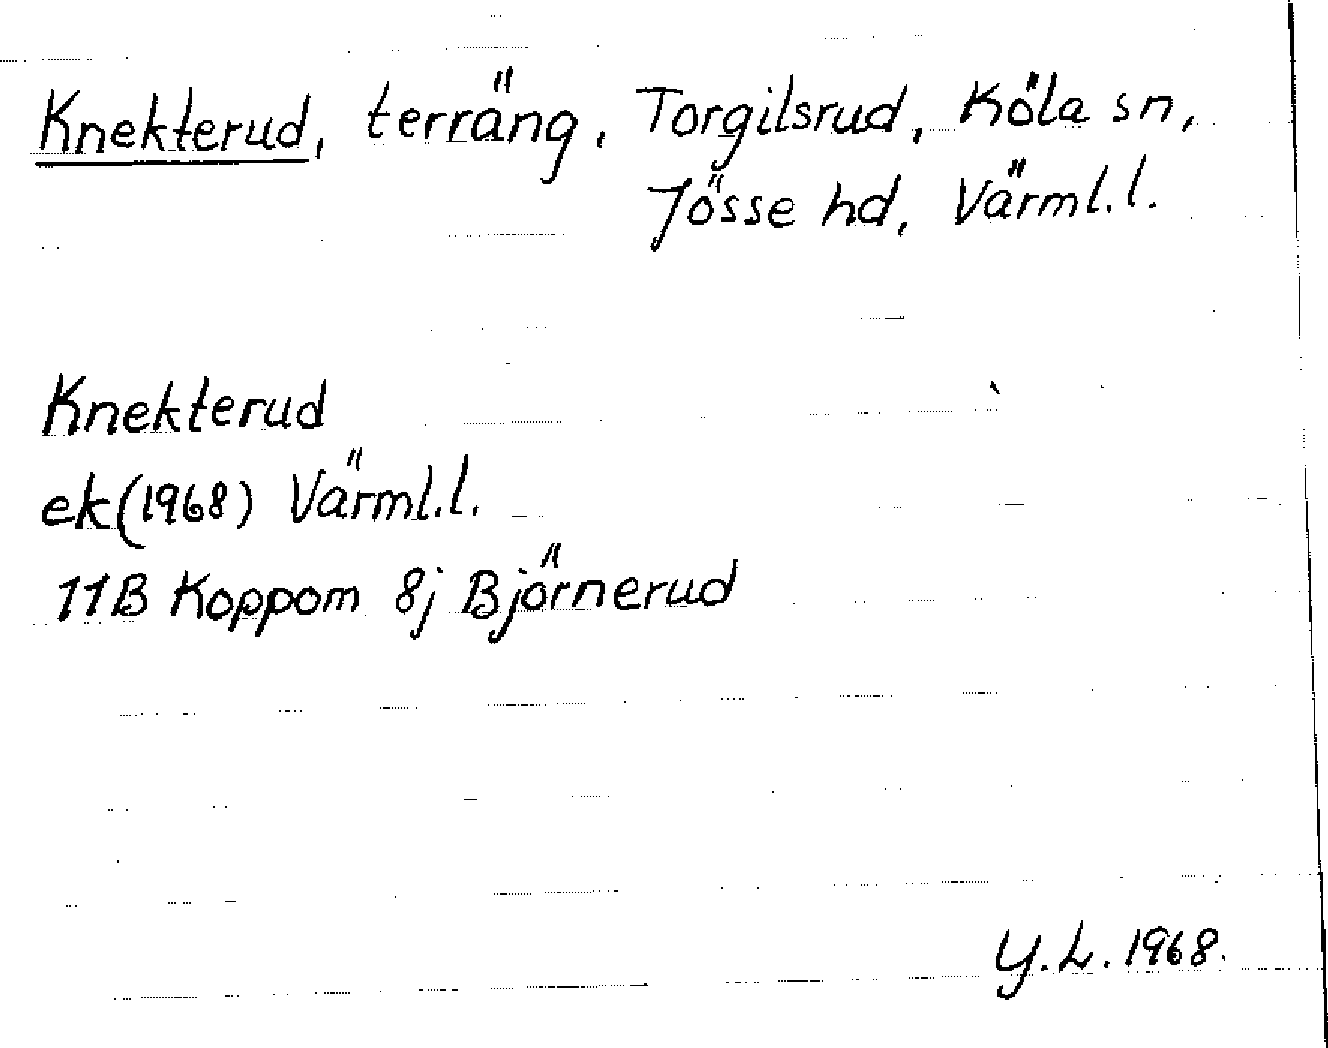 Knekterud, terräng, Torgilsrud, Köla sn,
Jösse hd, Värml.l.
Knekterud
ek(1968) Värml.l.
11B Koppom 8j Björnerud
Y.L. 1968.